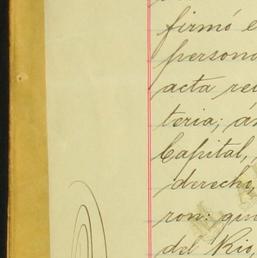 firmó e
persona
acta rec
teria; á
Capital,
derecho,
ron: que
del Rio,